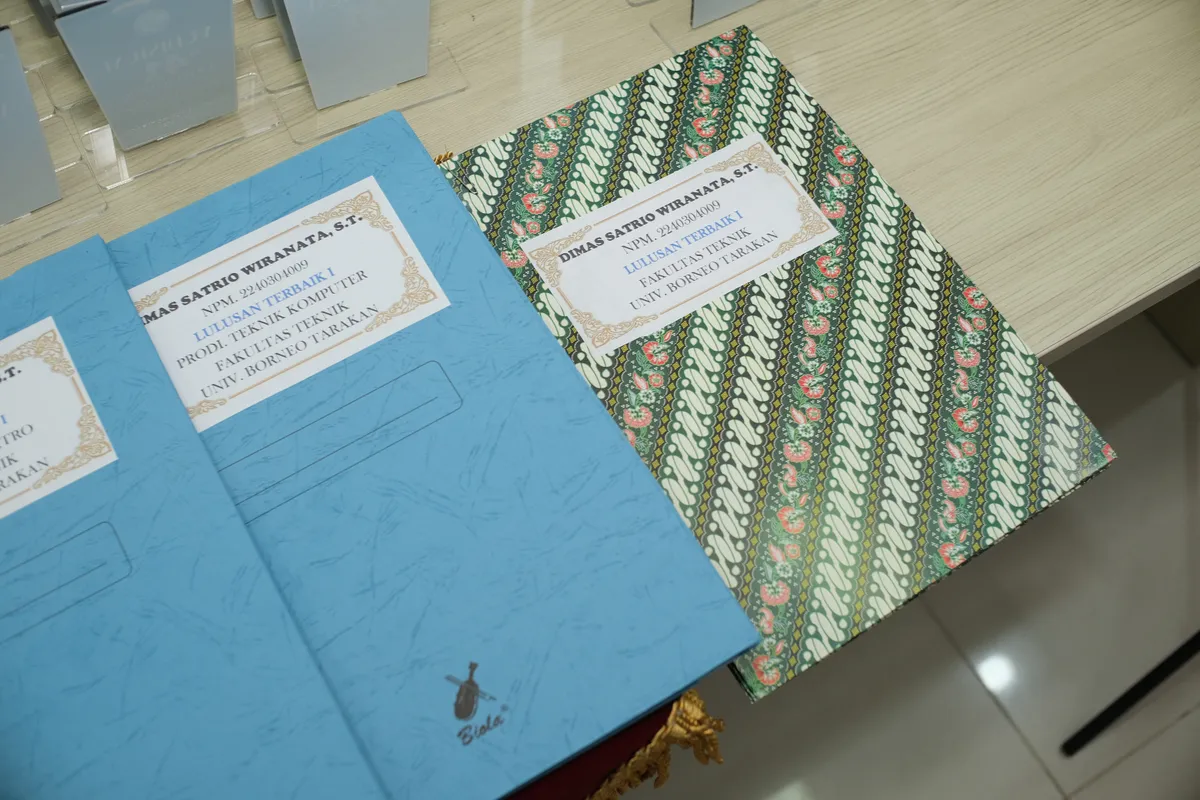 DIMAS SATRIO WIRANATA, S.T.
NPM. 2240304009
LULUSAN TERBAIK I
FAKULTAS TEKNIK
UNIV. BORNEO TARAKAN
MAS SATRIO WIRANATA, S.T.
NPM. 2240304009
LULUSAN TERBAIK I
PRODI. TEKNIK KOMPUTER
FAKULTAS TEKNIK
UNIV. BORNEO TARAKAN
S.T.
I
TRO
IK
RAKAN
Biola